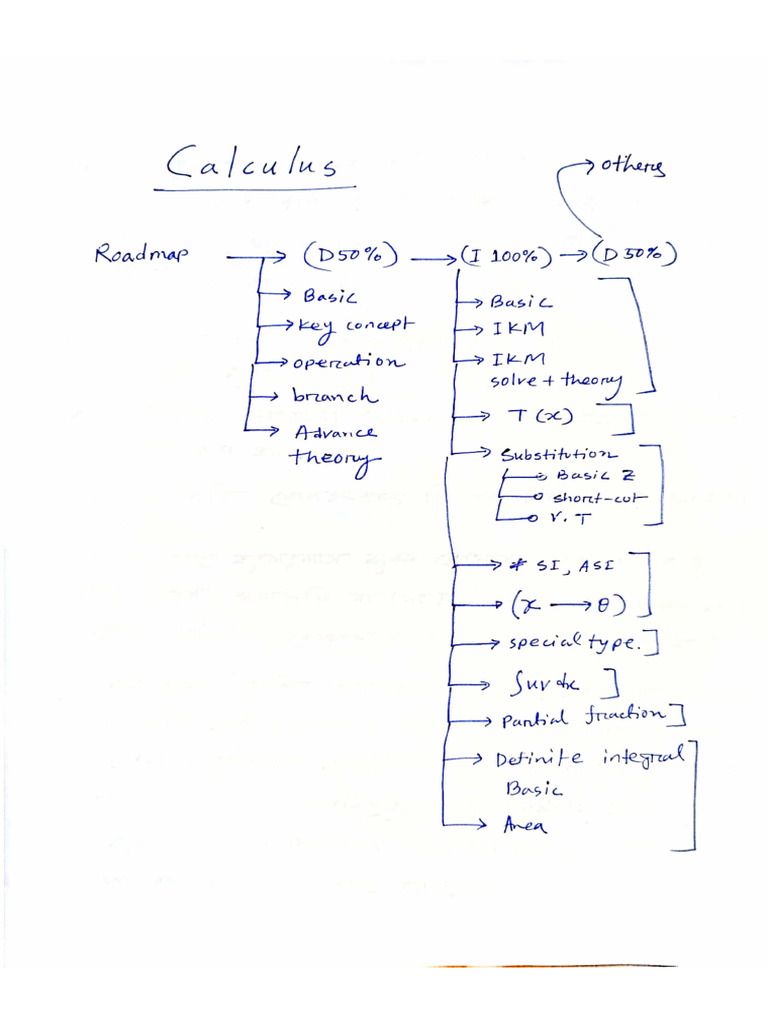 Calculus
others
Roadmap → (D 50%) → (I 100%) → (D 50%)
→ Basic
→ key concept
→ operation
→ branch
→ Advance
theory
→ Basic
→ IKM
→ IKM
solve + theory
→ T(x)
→ Substitution
Basic Z
short-cut
V.T
→ * SI, ASI
→ (x → θ)
→ special type.
→ ∫uv dx
→ Partial fraction
→ Definite integral
Basic
→ Area